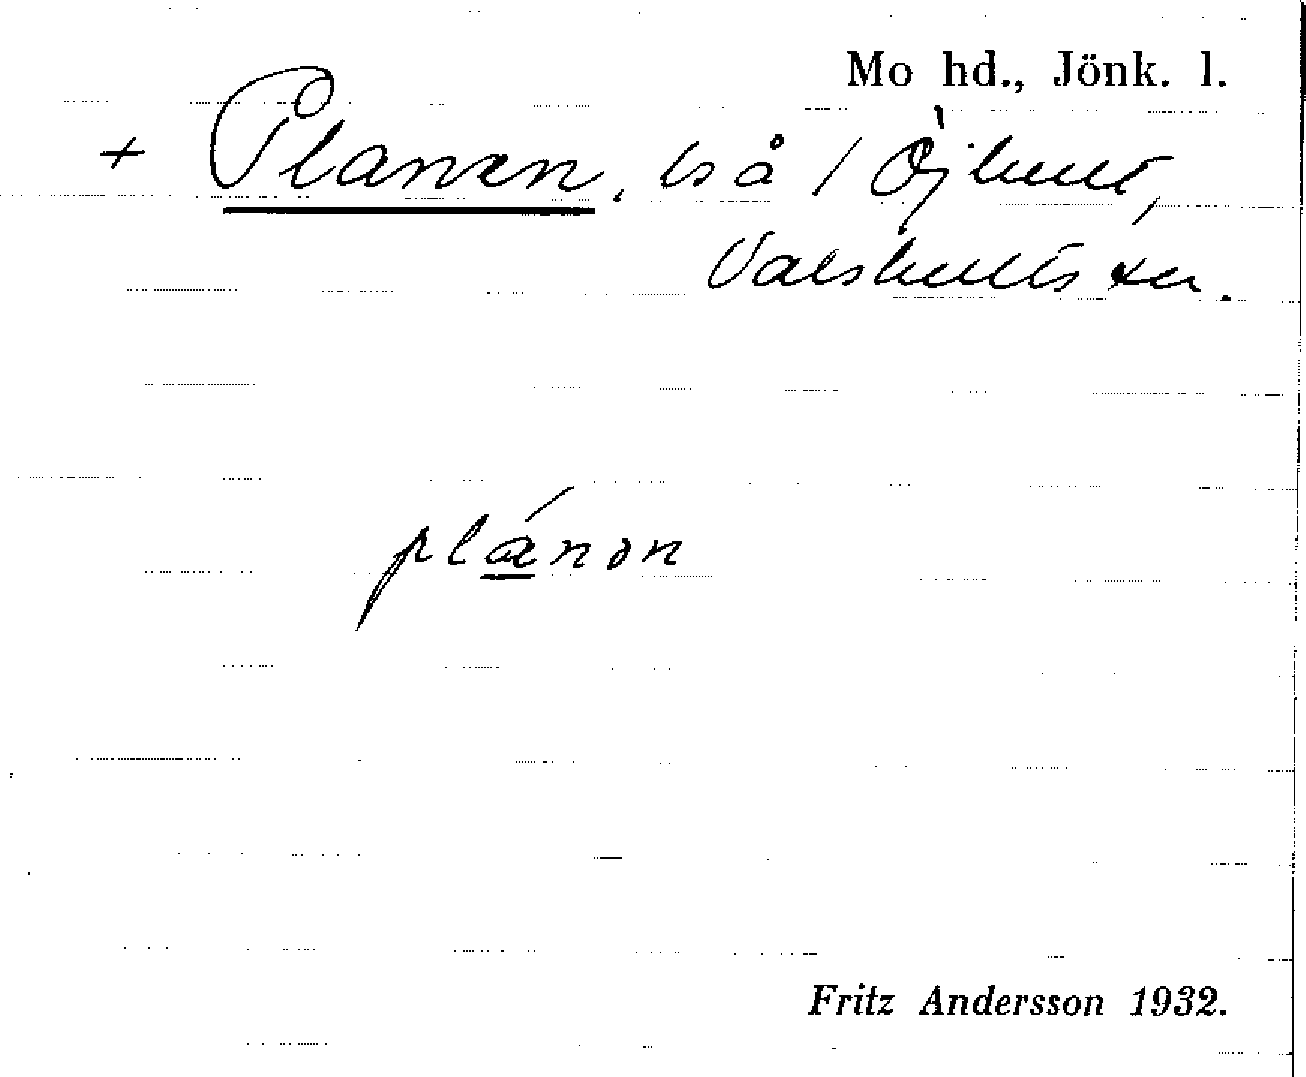 Mo hd., Jönk. l.
+ Planen, ts å / Öjhult,
Valshults sn.
plánon
Fritz Andersson 1932.